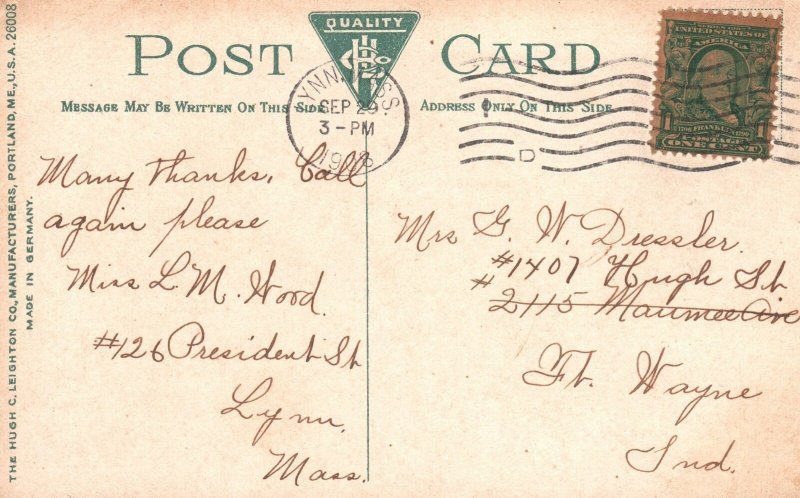 THE HUGH C. LEIGHTON CO., MANUFACTURERS, PORTLAND, ME., U.S.A. 26008
MADE IN GERMANY.
POST CARD
QUALITY
MESSAGE MAY BE WRITTEN ON THIS SIDE
ADDRESS ONLY ON THIS SIDE
LYNN, MASS.
SEP 29
3-PM
D
SERIES 1902
UNITED STATES OF
AMERICA
1706 FRANKLIN 1790
POSTAGE
1 ONE CENT 1
Many thanks. Call
again please
Miss L. M. Wood.
#126 President St
Lynn,
Mass.
Mrs G. W. Dressler.
#1407 Hugh St
# 2115 Maumee Ave
Ft. Wayne
Ind.